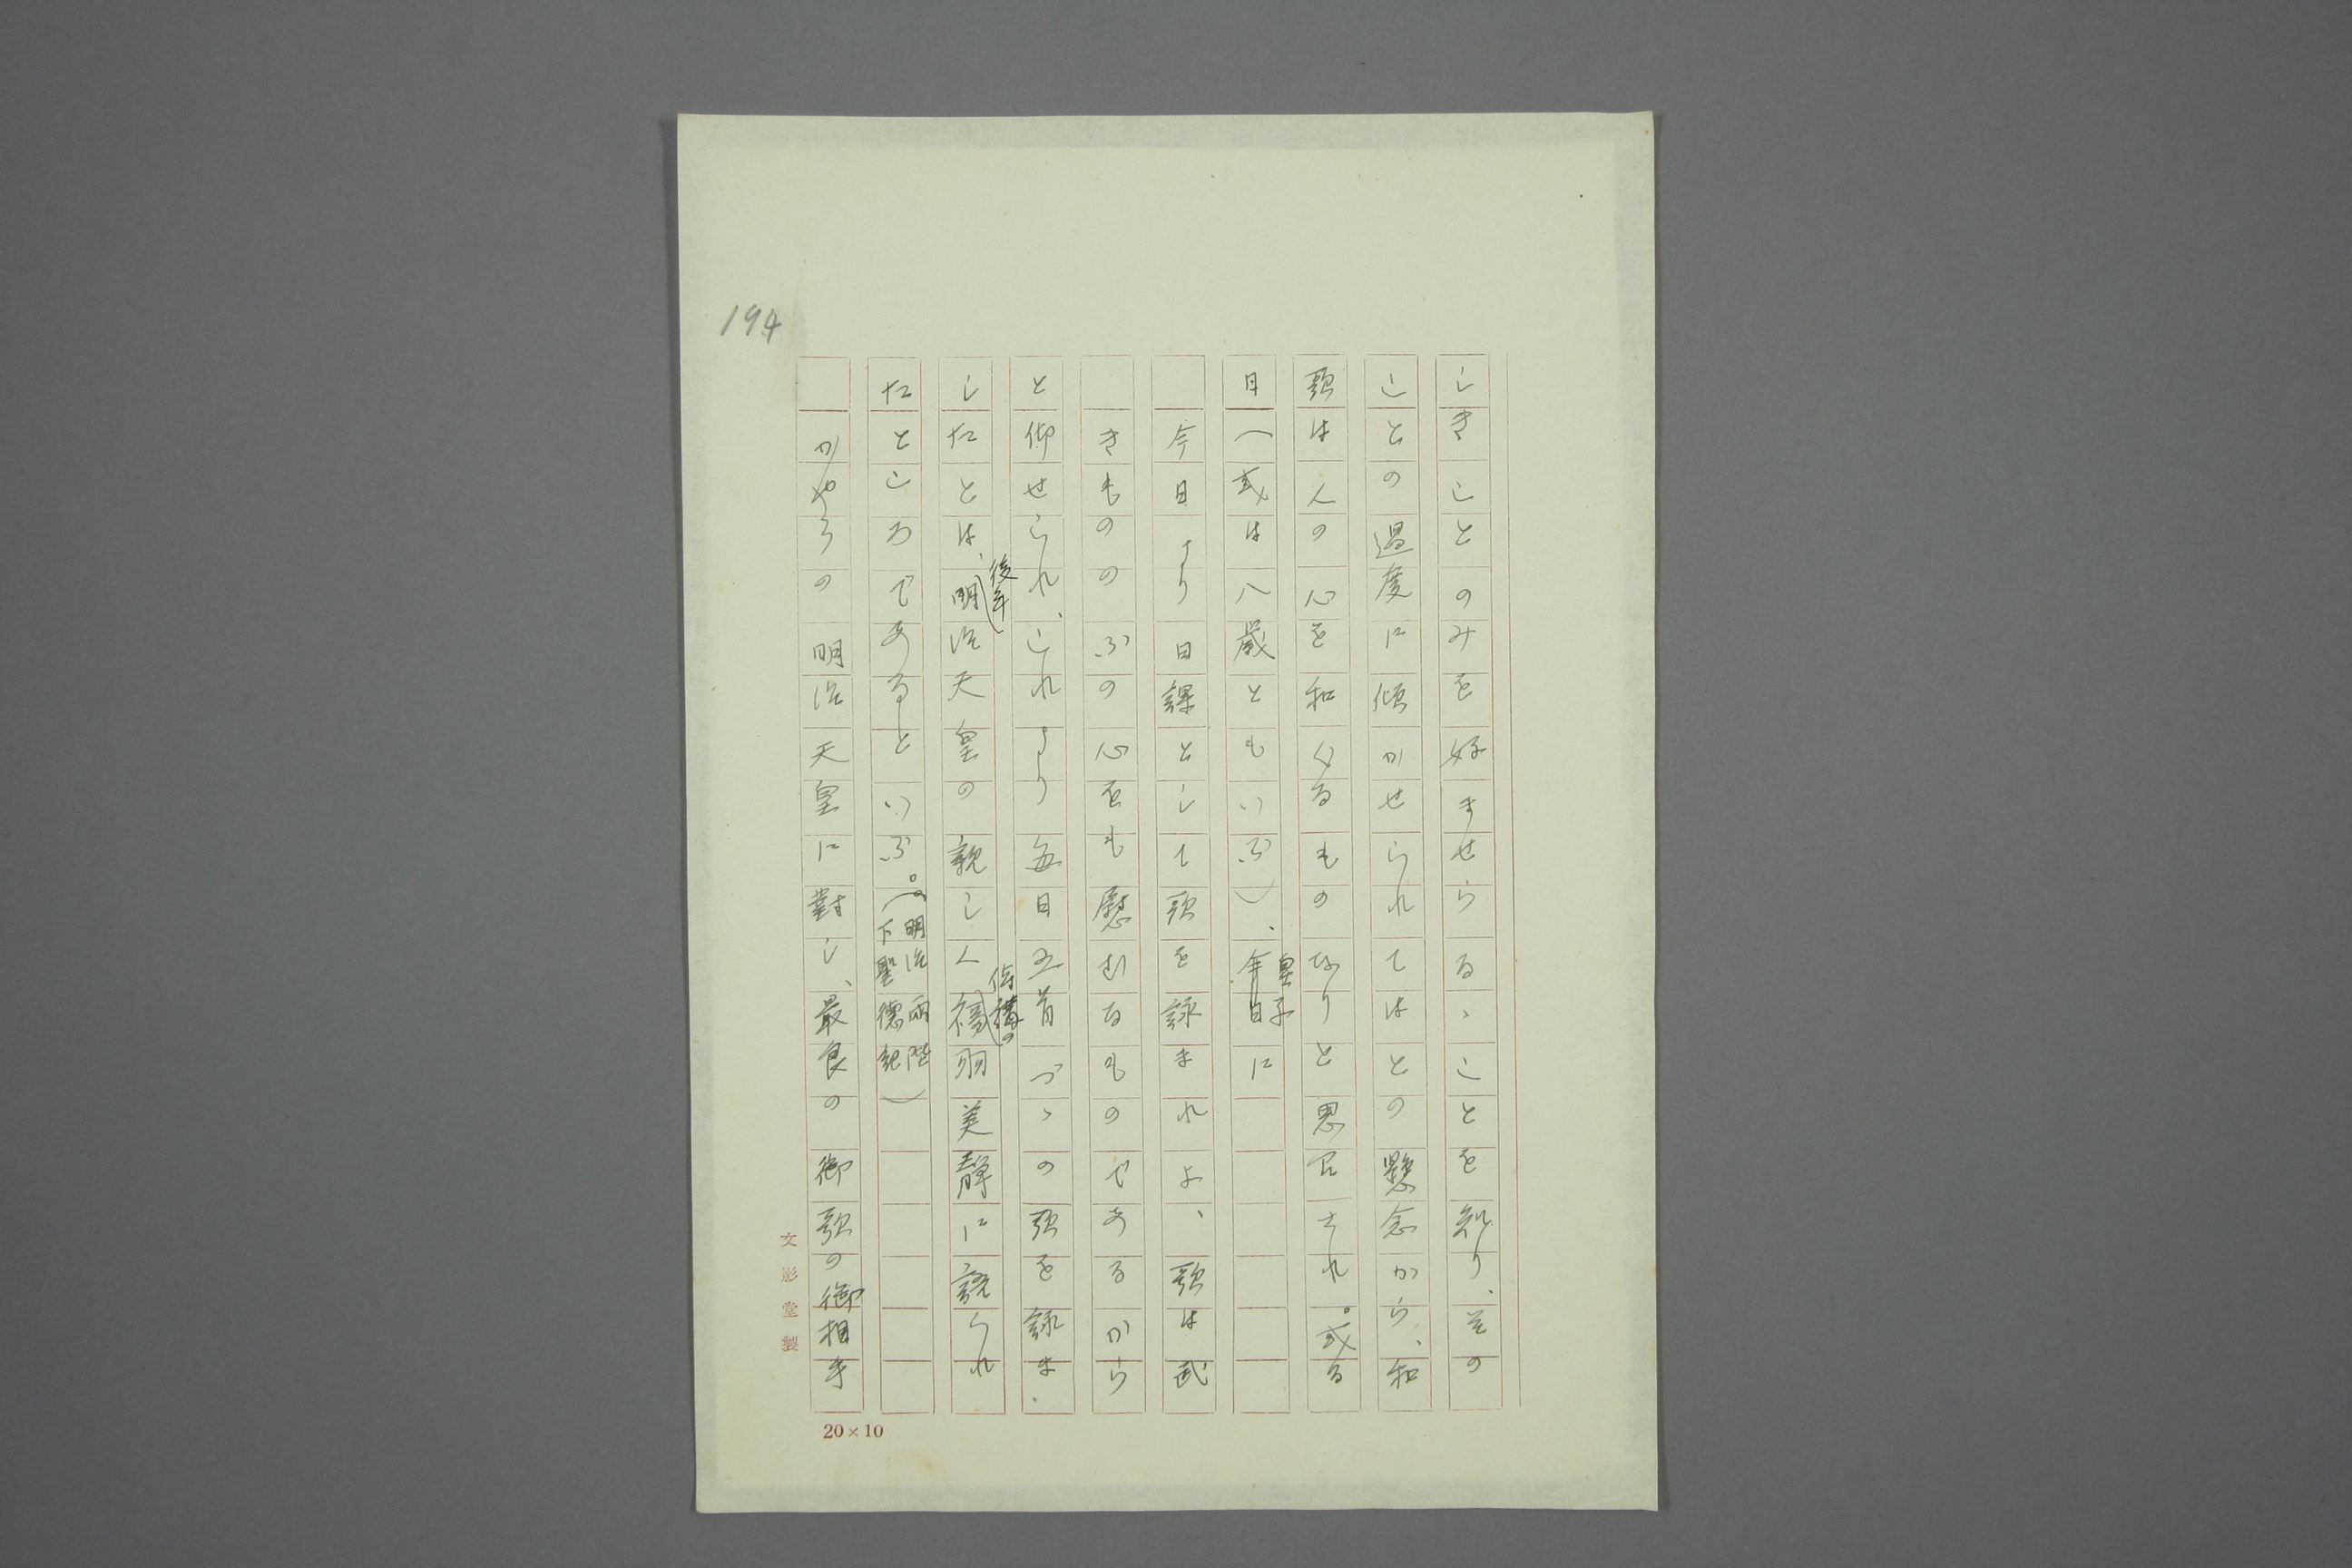 194
しきことのみを好ませらるゝことを知り、その
ことの過度に傾かせられてはとの懸念から、和
歌は人の心を和くるものなりと思召され。或る
日(或は八歳ともいふ)、皇子に
今日より日課として歌を詠まれよ、歌は武
きもののふの心をも慰むるものであるから
と仰せられ、これより毎日五首づゝの歌を詠ま
したとは、後年明治天皇の親しく侍講の福羽美静に語られ
たところであるといふ。(明治両陛
下聖徳記)
かやうの明治天皇に對し、最良の御歌の御相手
文影堂製
20×10